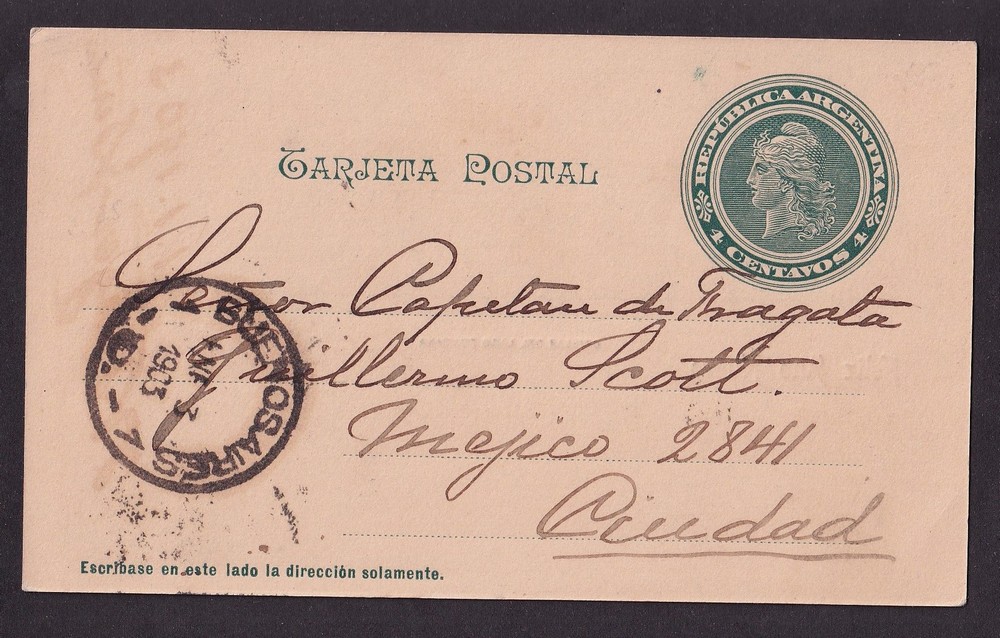 REPÚBLICA ARGENTINA
4 CENTAVOS 4
TARJETA POSTAL
Señor Capitan de Fragata
Guillermo Scott.
Mejico 2841
Ciudad
BUENOS AIRES
1903
Escríbase en este lado la dirección solamente.